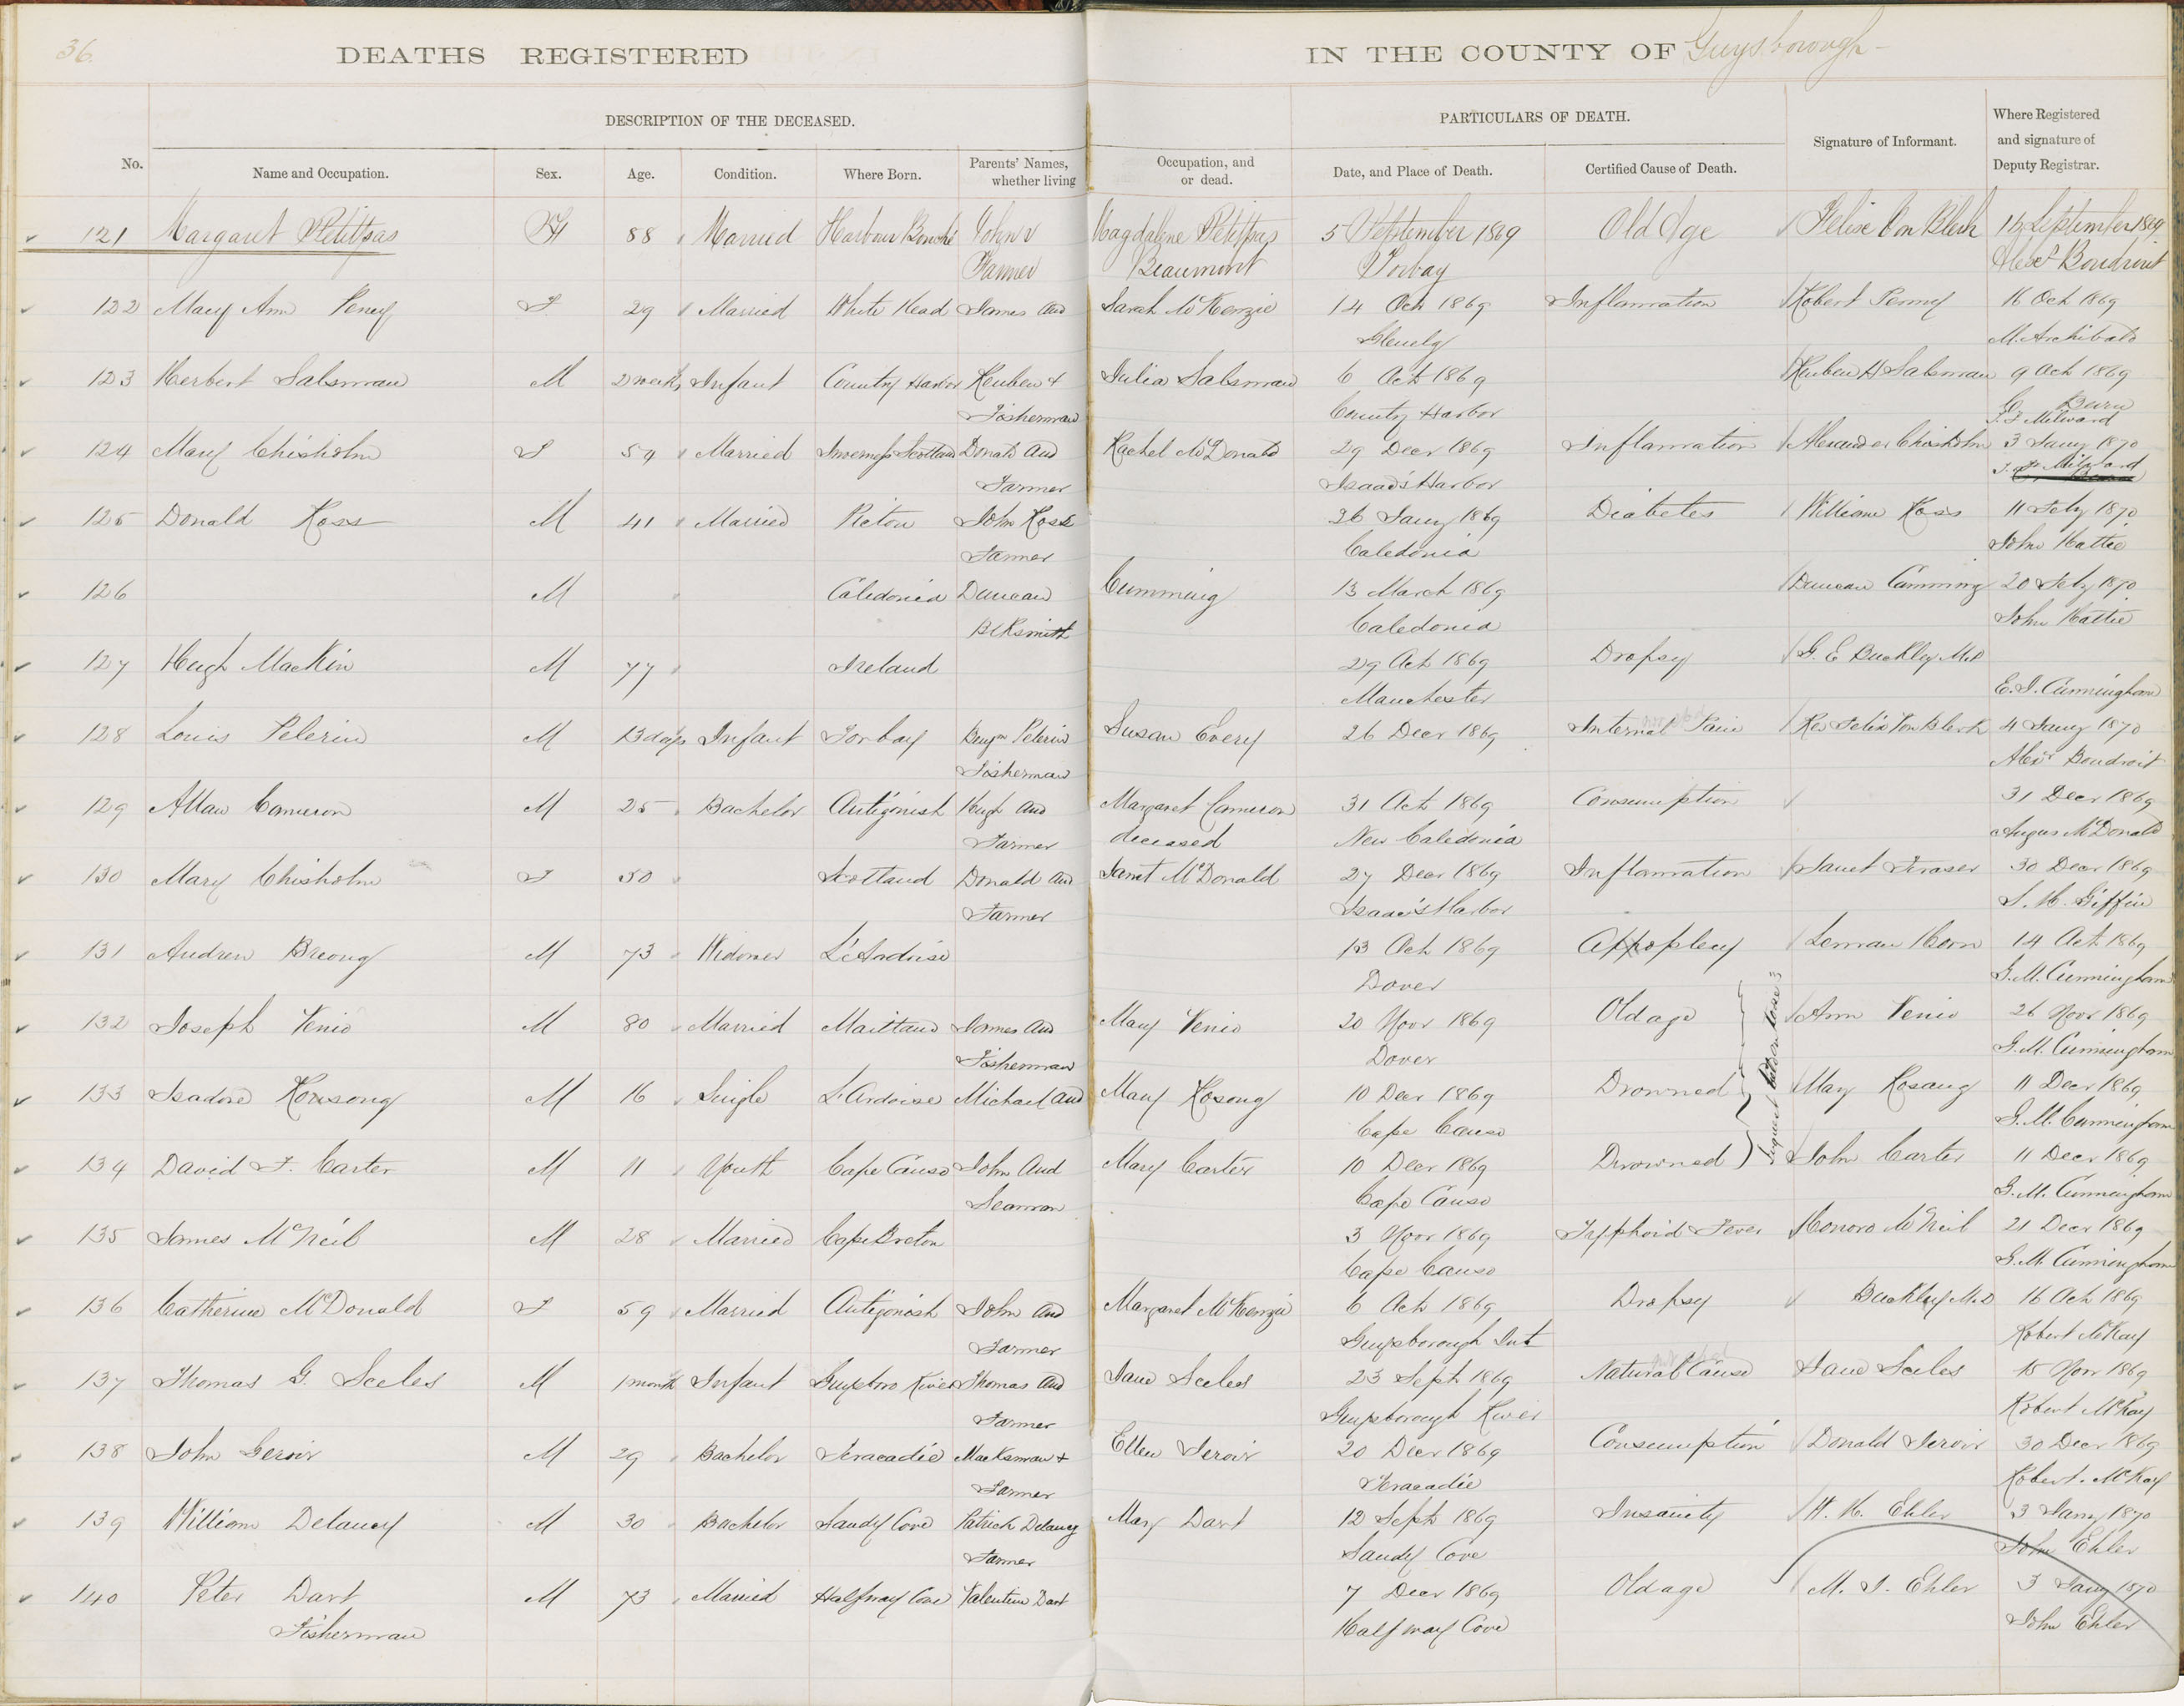 36.
DEATHS REGISTERED IN THE COUNTY OF Guysborough
DESCRIPTION OF THE DECEASED. PARTICULARS OF DEATH. Signature of Informant. Where Registered and signature of Deputy Registrar.
No. Name and Occupation. Sex. Age. Condition. Where Born. Parents' Names, whether living Occupation, and or dead. Date, and Place of Death. Certified Cause of Death.
121 Margaret Petitpas F 88 Married Harbour Bouché John & Magdalene Petitpas 5 September 1869 Old Age Felix Von Blerk September 1869
Farmer Beaumont Torbay Alexr Boudroit
122 Mary Ann Peney F 29 Married White Head James and Sarah McKenzie 14 Oct 1869 Inflamation Robert Penny 16 Oct 1869
Glenelg M. Archibald
123 Herbert Salsman M 2 weeks Infant Country Harbor Reuben & Julia Salsman 6 Oct 1869 Reuben H Salsman 9 Oct 1869
Fisherman Country Harbor
J. F Milward
124 Mary Chisholm F 54 Married Inverness Scotland Donald and Rachel McDonald 29 Decr 1869 Inflamation Alexander Chisholm 3 Jany 1870
Farmer Isaac's Harbor
125 Donald Ross M 41 Married Pictou John Ross 26 Jany 1869 Diabetes William Ross 11 Feby 1870
Farmer Caledonia John Hattie
126 M Caledonia Duncan Cumming 13 March 1869 Duncan Cumming 20 Feby 1870
Blksmith Caledonia John Hattie
127 Hugh MacKin M 77 Ireland 29 Oct 1869 Dropsy G. E Buckley M.D
Manchester E. I. Cunningham
128 Louis Pelerin M 13 days Infant Torbay Benjn Pelerin Susan Every 26 Decr 1869 Internal Pain Rev Felix Von Blerk 4 Jany 1870
Fisherman Alexr Boudroit
129 Allan Cameron M 25 Bachelor Antigonish Hugh and Margaret Cameron 31 Oct 1869 Consumption 31 Decr 1869
Farmer deceased New Caledonia Angus McDonald
130 Mary Chisholm F 50 Scotland Donald and Janet McDonald 27 Decr 1869 Inflamation Janet Fraser 30 Decr 1869
Farmer Isaac's Harbor S. H. Giffin
131 Andrew Breong M 73 Widower L'Ardoise 13 Oct 1869 Appoplexy Leman Horn 14 Oct 1869
Dover G. M. Cunningham
132 Joseph Venio M 80 Married Maitland James and Mary Venio 20 Novr 1869 Old age Ann Venio 26 Novr 1869
Fisherman Dover G. M. Cunningham
133 Isadore Rousong M 16 Single L'Ardoise Michael and Mary Rosong 10 Decr 1869 Drowned Mary Rosang 11 Decr 1869
Cape Canso G. M. Cunningham
134 David F. Carter M 11 Youth Cape Canso John and Mary Carter 10 Decr 1869 Drowned John Carter 11 Decr 1869
Seaman Cape Canso G. M. Cunningham
135 James McNeil M 28 Married Cape Breton 3 Novr 1869 Typphoid Fever Honora McNeil 21 Decr 1869
Cape Canso G. M. Cunningham
136 Catherine McDonald F 59 Married Antigonish John and Margaret McKenzie 6 Oct 1869 Dropsy Buckley M.D 16 Oct 1869
Farmer Guysborough Int Robert McKay
137 Thomas G. Sceles M 1 month Infant Guysboro River Thomas and Jane Sceles 23 Sept 1869 Natural Cause Jane Sceles 15 Novr 1869
Farmer Guysborough River Robert McKay
138 John Geroir M 29 Bachelor Tracadie Marksman & Ellen Geroir 20 Decr 1869 Consumption Donald Geroir 30 Decr 1869
Farmer Tracadie Robert McKay
139 William Delancy M 30 Bachelor Sandy Cove Patrick Delancy Mary Dart 12 Sept 1869 Insanity H. H. Ehler 3 Jany 1870
Farmer Sandy Cove John Ehler
140 Peter Dart M 73 Married Halfway Cove Valentine Dart 7 Decr 1869 Old age M. I. Ehler 3 Jany 1870
Fisherman Halfway Cove John Ehler